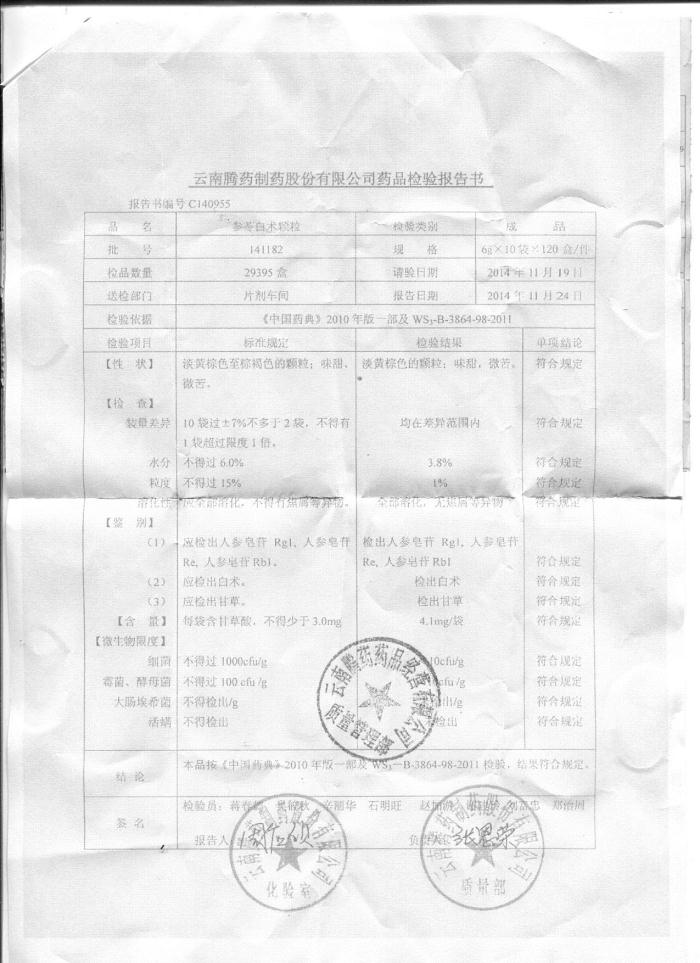 云南腾药制药股份有限公司药品检验报告书
报告书编号 C140955
品 名 参苓白术颗粒 检验类别 成 品
批 号 141182 规 格 6g×10袋×120盒/件
检品数量 29395 盒 请验日期 2014 年 11 月 19 日
送检部门 片剂车间 报告日期 2014 年 11 月 24 日
检验依据 《中国药典》2010 年版一部及 WS₃-B-3864-98-2011
检验项目 标准规定 检验结果 单项结论
【性 状】 淡黄棕色至棕褐色的颗粒；味甜、 淡黄棕色的颗粒；味甜，微苦。 符合规定
微苦。
【检 查】
装量差异 10 袋过±7%不多于 2 袋，不得有 均在差异范围内 符合规定
1 袋超过限度 1 倍。
水分 不得过 6.0% 3.8% 符合规定
粒度 不得过 15% 1% 符合规定
溶化性 应全部溶化，不得有焦屑等异物。 全部溶化，无焦屑等异物 符合规定
【鉴 别】
（1） 应检出人参皂苷 Rg1, 人参皂苷 检出人参皂苷 Rg1, 人参皂苷
Re, 人参皂苷 Rb1。 Re, 人参皂苷 Rb1 符合规定
（2） 应检出白术。 检出白术 符合规定
（3） 应检出甘草。 检出甘草 符合规定
【含 量】 每袋含甘草酸，不得少于 3.0mg 4.1mg/袋 符合规定
【微生物限度】
细菌 不得过 1000cfu/g 10cfu/g 符合规定
霉菌、酵母菌 不得过 100 cfu/g cfu/g 符合规定
大肠埃希菌 不得检出/g 出/g 符合规定
活螨 不得检出 检出 符合规定
云南腾药药品经营有限公司
质量管理部
结 论 本品按《中国药典》2010 年版一部及 WS₃—B-3864-98-2011 检验，结果符合规定。
签 名 检验员： 辛丽华 石明旺 郑治周
报告人 负责人
云南腾药制药股份有限公司
化验室
张思荣
云南腾药制药股份有限公司
质量部